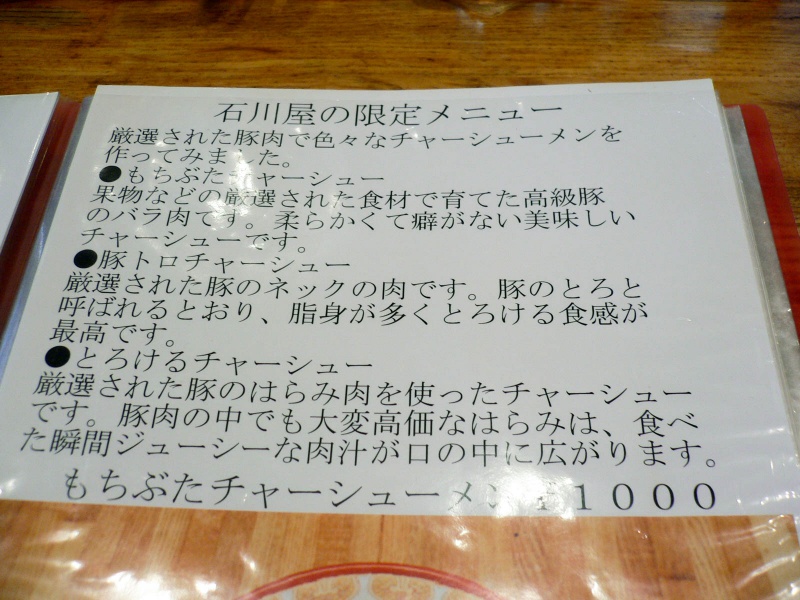 石川屋の限定メニュー
厳選された豚肉で色々なチャーシューメンを
作ってみました。
●もちぶたチャーシュー
果物などの厳選された食材で育てた高級豚
のバラ肉です。柔らかくて癖がない美味しい
チャーシューです。
●豚トロチャーシュー
厳選された豚のネックの肉です。豚のとろと
呼ばれるとおり、脂身が多くとろける食感が
最高です。
●とろけるチャーシュー
厳選された豚のはらみ肉を使ったチャーシュー
です。豚肉の中でも大変高価なはらみは、食べ
た瞬間ジューシーな肉汁が口の中に広がります。
もちぶたチャーシューメン ¥１０００